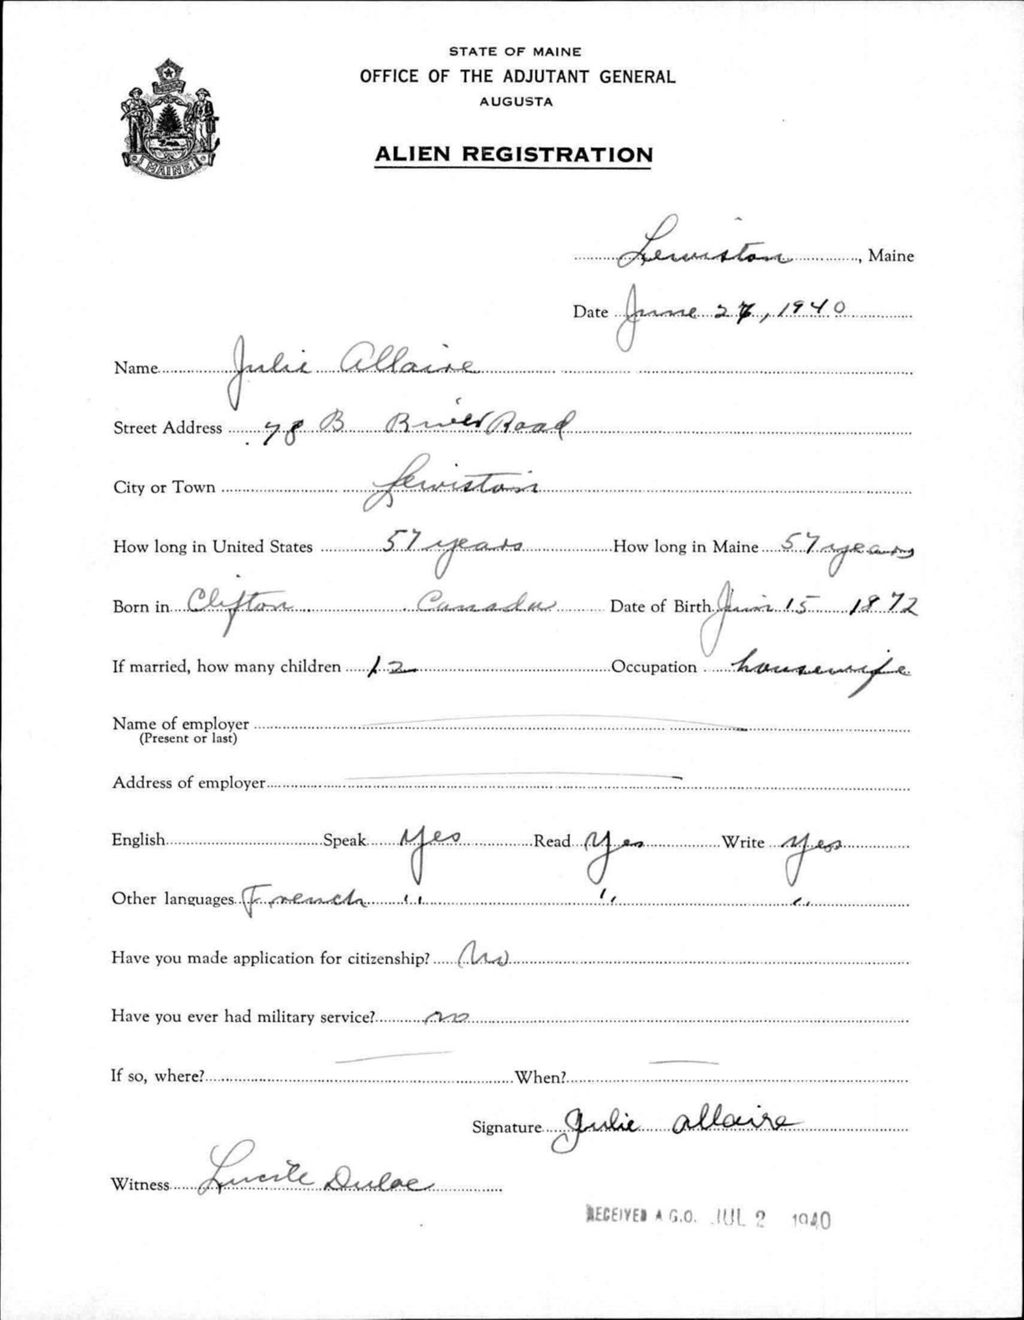 STATE OF MAINE
OFFICE OF THE ADJUTANT GENERAL
AUGUSTA
ALIEN REGISTRATION
MAINE
Lewiston, Maine
Date June 27, 1940
Name Julie Allaire
Street Address 78 B River Road
City or Town Lewiston
How long in United States 57 years How long in Maine 57 years
Born in Clifton Canada Date of Birth Juin 15 1872
If married, how many children 12 Occupation housewife
Name of employer
(Present or last)
Address of employer
English Speak Yes Read Yes Write Yes
Other languages French " " "
Have you made application for citizenship? No
Have you ever had military service? no
If so, where? When?
Signature Julie Allaire
Witness Lucile
RECEIVED A.G.O. JUL 2 1940